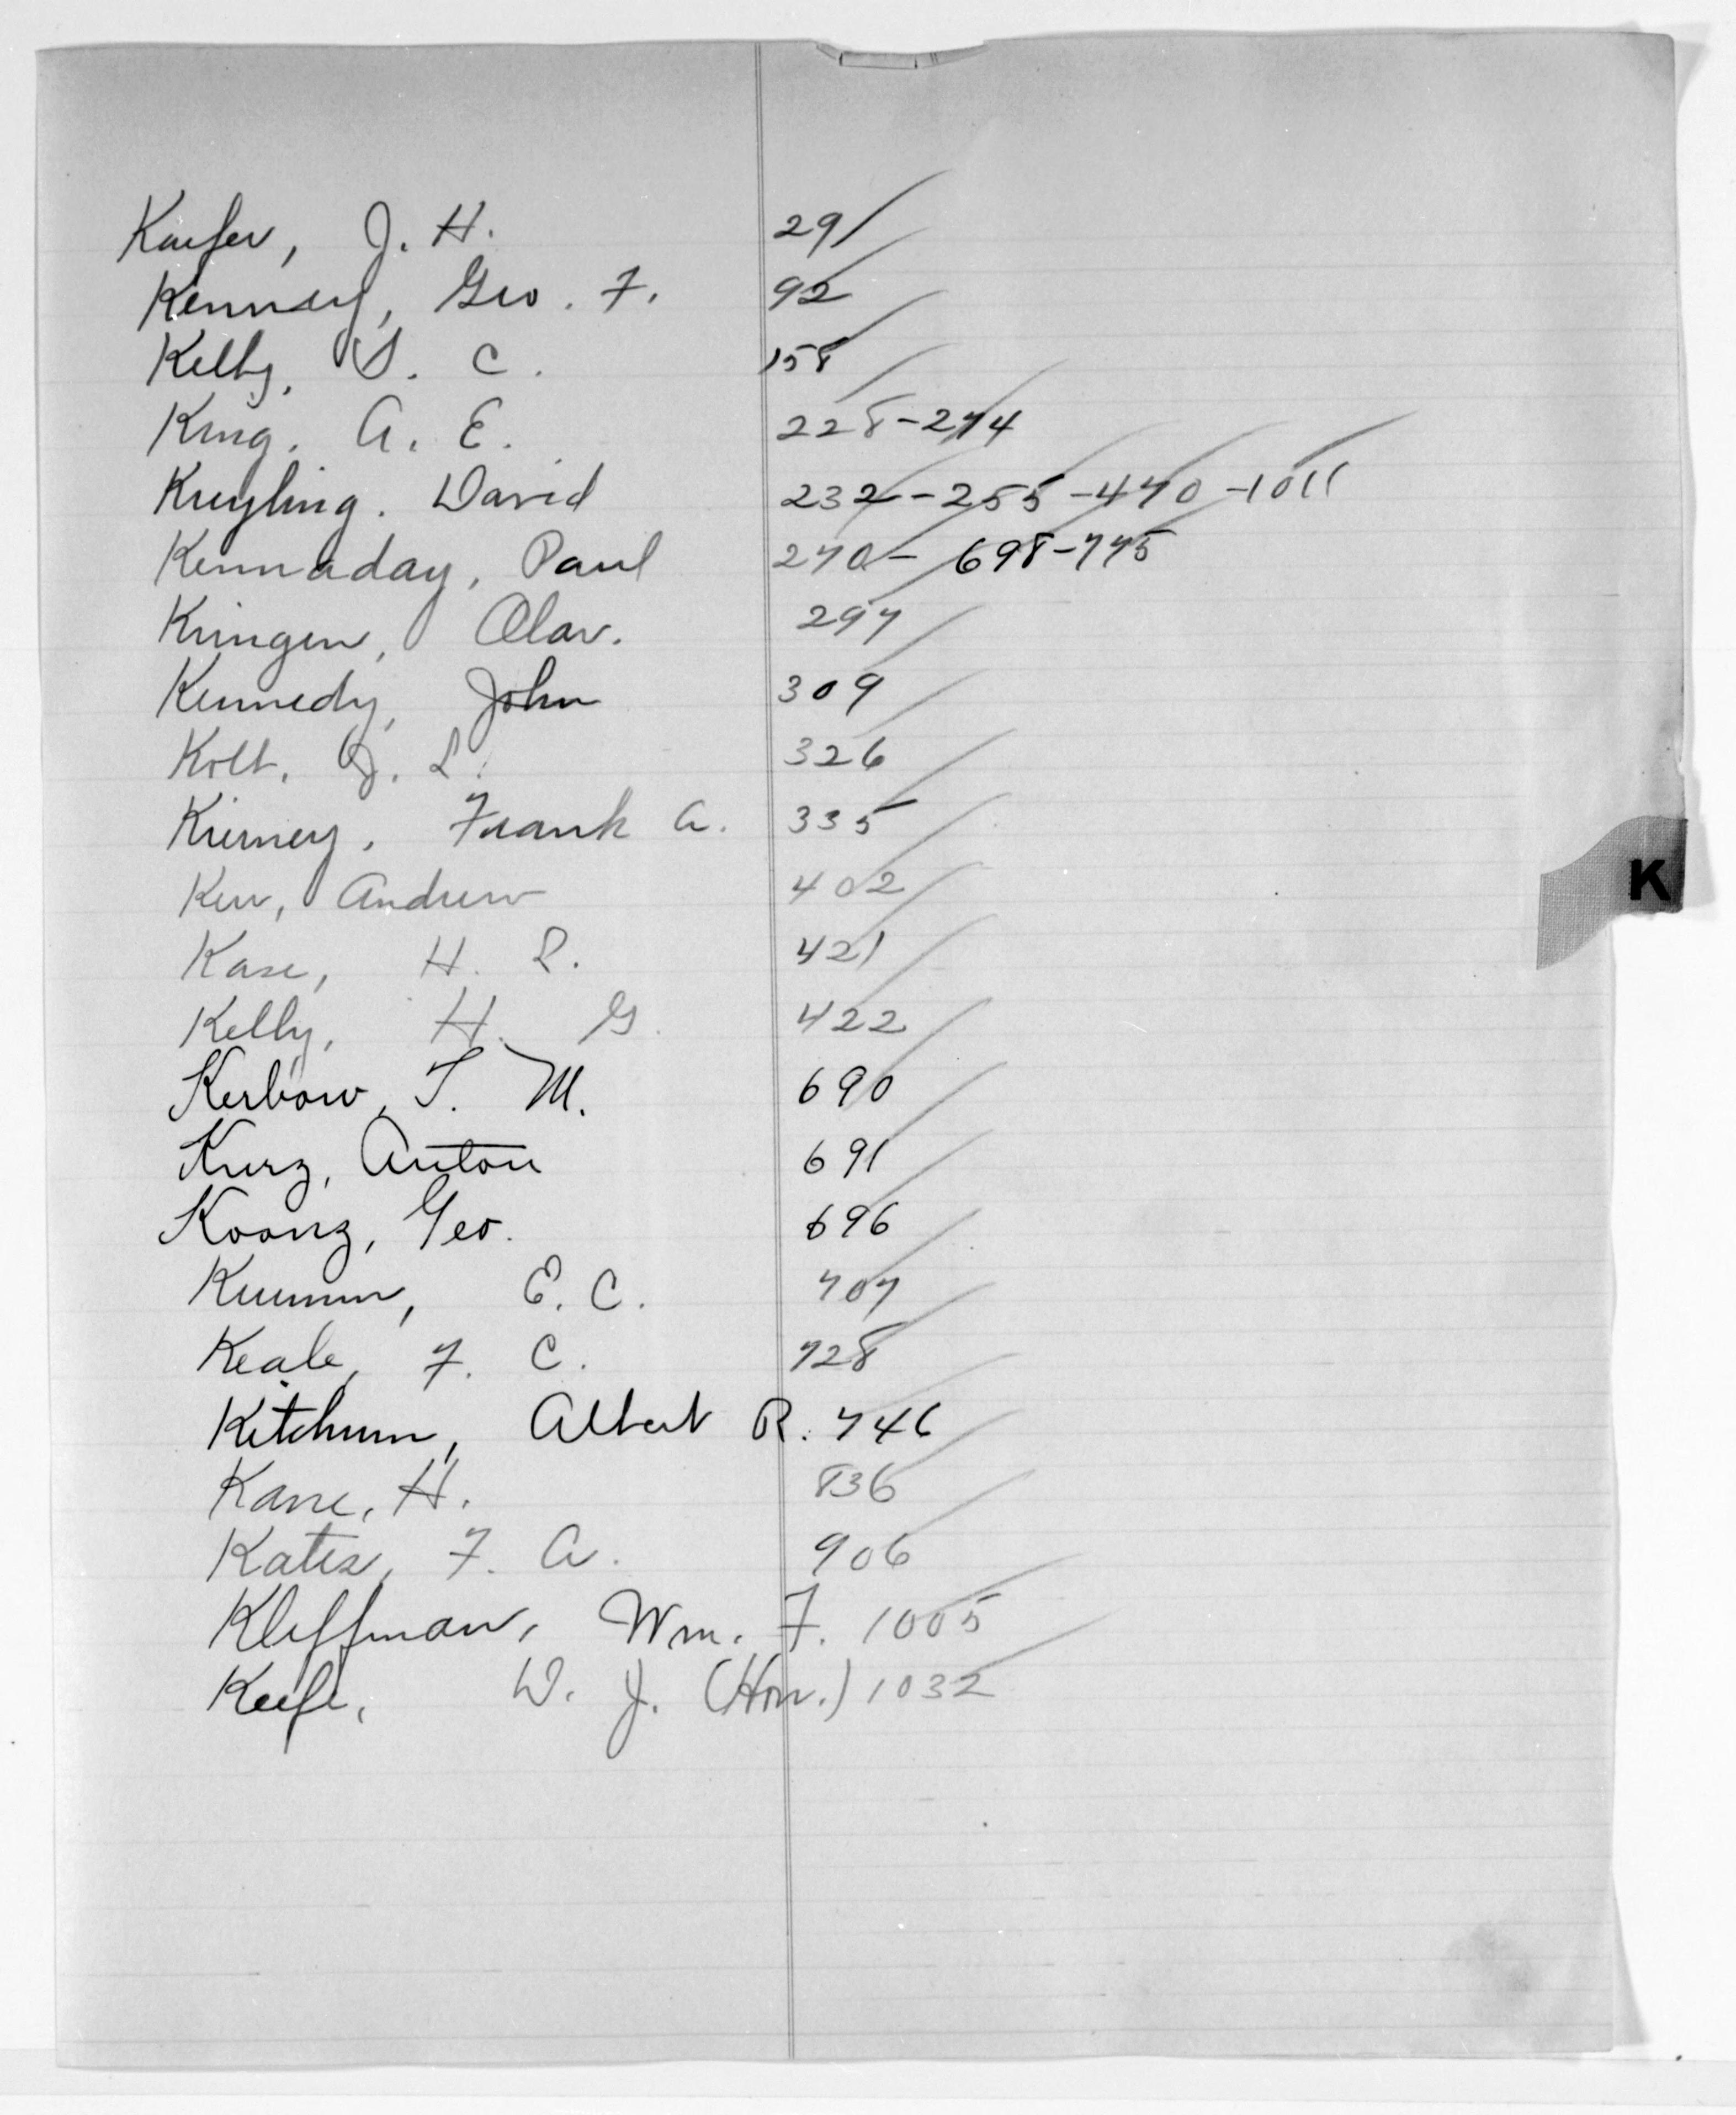 Kaufer, J. H. 29
Kenney, Geo. F. 92
Kelly, S. C. 158
King, A. E. 228-274
Kreyling. David 232-255-470-1011
Kennaday, Paul 270-698-775
Kringen, Olav. 297
Kennedy, John 309
Kolb, J. L. 326
Kierney, Frank A. 335
Kerr, Andrew 402
Kase, H. L. 421
Kelly, H. G. 422
Kerbow, T. M. 690
Kurz, Anton 691
Koonz, Geo. 696
Kumm, E. C. 707
Keale, F. C. 728
Ketchum, Albert R. 746
K
Kane, H. 836
Kates, F. A. 906
Kliffman, Wm. F. 1005
Keefe, D. J. (Hon.) 1032